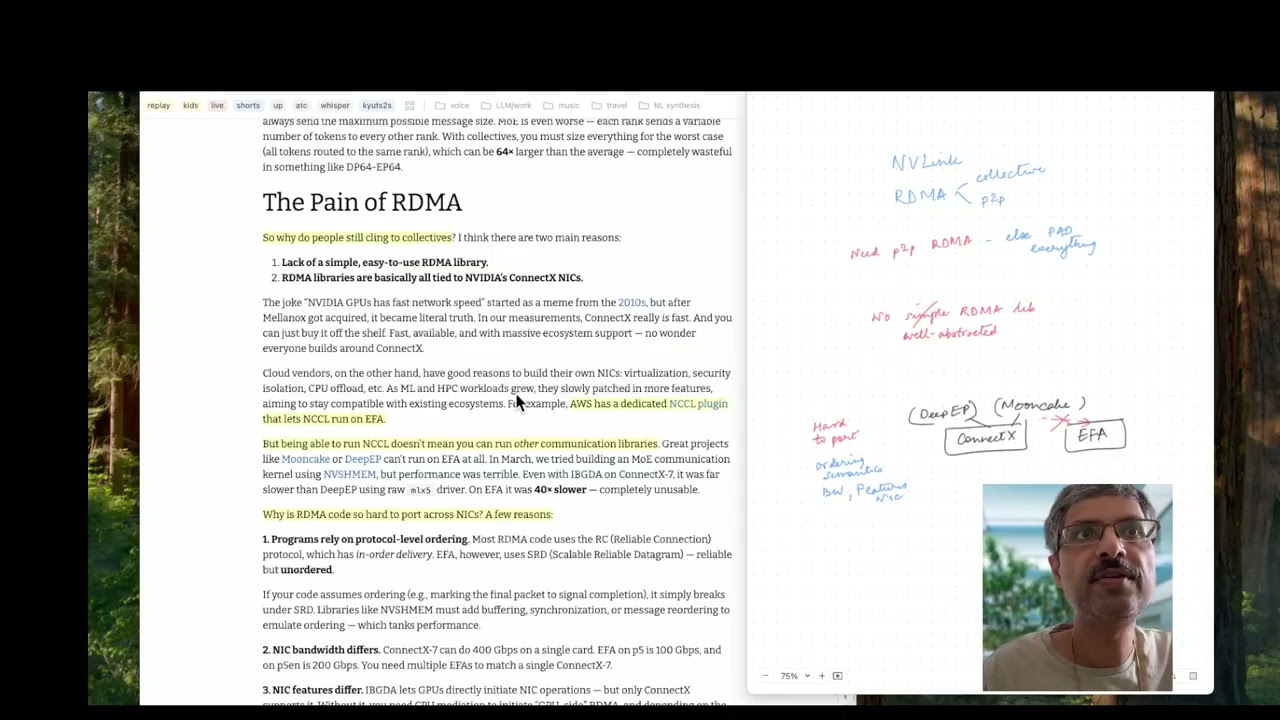 replay kids live shorts up atc whisper kyuts2s voice LLM/work music travel NL synthesis
always send the maximum possible message size. MoE is even worse — each rank sends a variable
number of tokens to every other rank. With collectives, you must size everything for the worst case
(all tokens routed to the same rank), which can be 64× larger than the average — completely wasteful
in something like DP64-EP64.
The Pain of RDMA
So why do people still cling to collectives? I think there are two main reasons:
1. Lack of a simple, easy-to-use RDMA library.
2. RDMA libraries are basically all tied to NVIDIA's ConnectX NICs.
The joke "NVIDIA GPUs has fast network speed" started as a meme from the 2010s, but after
Mellanox got acquired, it became literal truth. In our measurements, ConnectX really is fast. And you
can just buy it off the shelf. Fast, available, and with massive ecosystem support — no wonder
everyone builds around ConnectX.
Cloud vendors, on the other hand, have good reasons to build their own NICs: virtualization, security
isolation, CPU offload, etc. As ML and HPC workloads grew, they slowly patched in more features,
aiming to stay compatible with existing ecosystems. For example, AWS has a dedicated NCCL plugin
that lets NCCL run on EFA.
But being able to run NCCL doesn't mean you can run other communication libraries. Great projects
like Mooncake or DeepEP can't run on EFA at all. In March, we tried building an MoE communication
kernel using NVSHMEM, but performance was terrible. Even with IBGDA on ConnectX-7, it was far
slower than DeepEP using raw mlx5 driver. On EFA it was 40× slower — completely unusable.
Why is RDMA code so hard to port across NICs? A few reasons:
1. Programs rely on protocol-level ordering. Most RDMA code uses the RC (Reliable Connection)
protocol, which has in-order delivery. EFA, however, uses SRD (Scalable Reliable Datagram) — reliable
but unordered.
If your code assumes ordering (e.g., marking the final packet to signal completion), it simply breaks
under SRD. Libraries like NVSHMEM must add buffering, synchronization, or message reordering to
emulate ordering — which tanks performance.
2. NIC bandwidth differs. ConnectX-7 can do 400 Gbps on a single card. EFA on p5 is 100 Gbps, and
on p5en is 200 Gbps. You need multiple EFAs to match a single ConnectX-7.
3. NIC features differ. IBGDA lets GPUs directly initiate NIC operations — but only ConnectX
NVLink
RDMA
collective
p2p
Need p2p RDMA - else PAD
everything
No simple RDMA lib
well-abstracted
(DeepEP) (Mooncake)
ConnectX
EFA
Hard
to port
ordering
semantics
BW, Features
NIC
75%